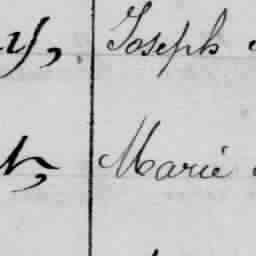 y, Joseph
t, Marie